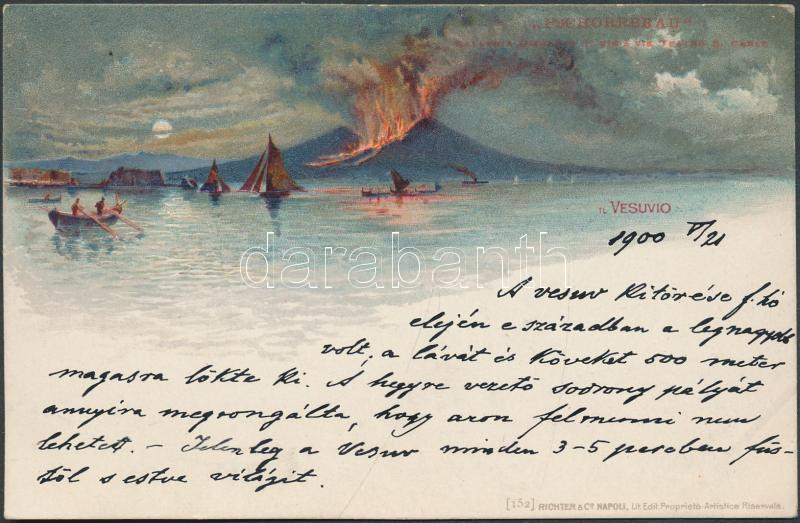 „PSCHORRBRÄU“
GALLERIA UMBERTO I. VIS À VIS TEATRO S. CARLO
IL VESUVIO
1900 V/21
A vesuv kitörése f. hó
elején e században a legnagyobb
volt, a lávát és köveket 500 meter
magasra lökte ki. A hegyre vezető sodrony pályát
annyira megrongálta, hogy azon felmenni nem
lehetett. – Jelenleg a Vesuv minden 3-5 percben füs-
töl s estve világit.
darabanth
[152] RICHTER & Cº NAPOLI, Lit. Edit. Proprietà Artistica Riservata.